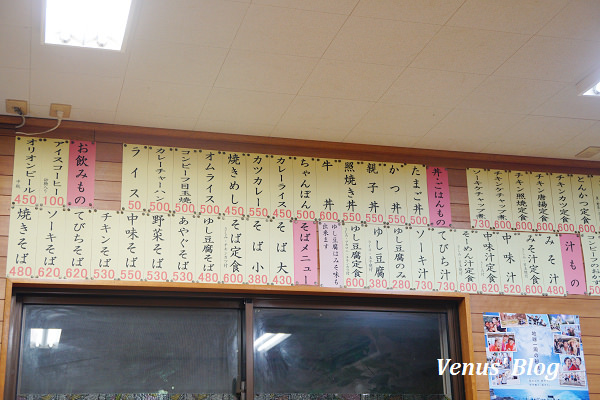 とんかつ定食 600
チキンカツ定食 600
チキン唐揚定食 600
チキン照焼定食 600
ソーキケチャップ煮 730
丼ごはんもの
たまご丼 500
かつ丼 550
親子丼 550
照焼き丼 550
牛丼 600
ちゃんぽん 500
カレーライス 450
カツカレー 550
焼きめし 450
オムライス 500
コンビーフ目玉焼 500
カレーチャーハン 500
ライス
お飲みもの
アイスコーヒー 100
オリオンビール 450
コンビーフのおかず
汁もの
みそ汁 480
みそ汁定食 600
中味汁 520
中味汁定食 620
そーめん汁定食
てびち汁 730
ソーキ汁 730
ゆし豆腐のみ 280
ゆし豆腐 380
ゆし豆腐定食 600
ゆし豆腐はみそ味も出来ます
そばメニュー
そば大 430
そば小 380
そば定食 630
ゆし豆腐そば 480
あやぐそば 530
野菜そば 530
中味そば 550
チキンそば 530
てびちそば 620
ソーキそば 620
焼きそば 480
Venus Blog